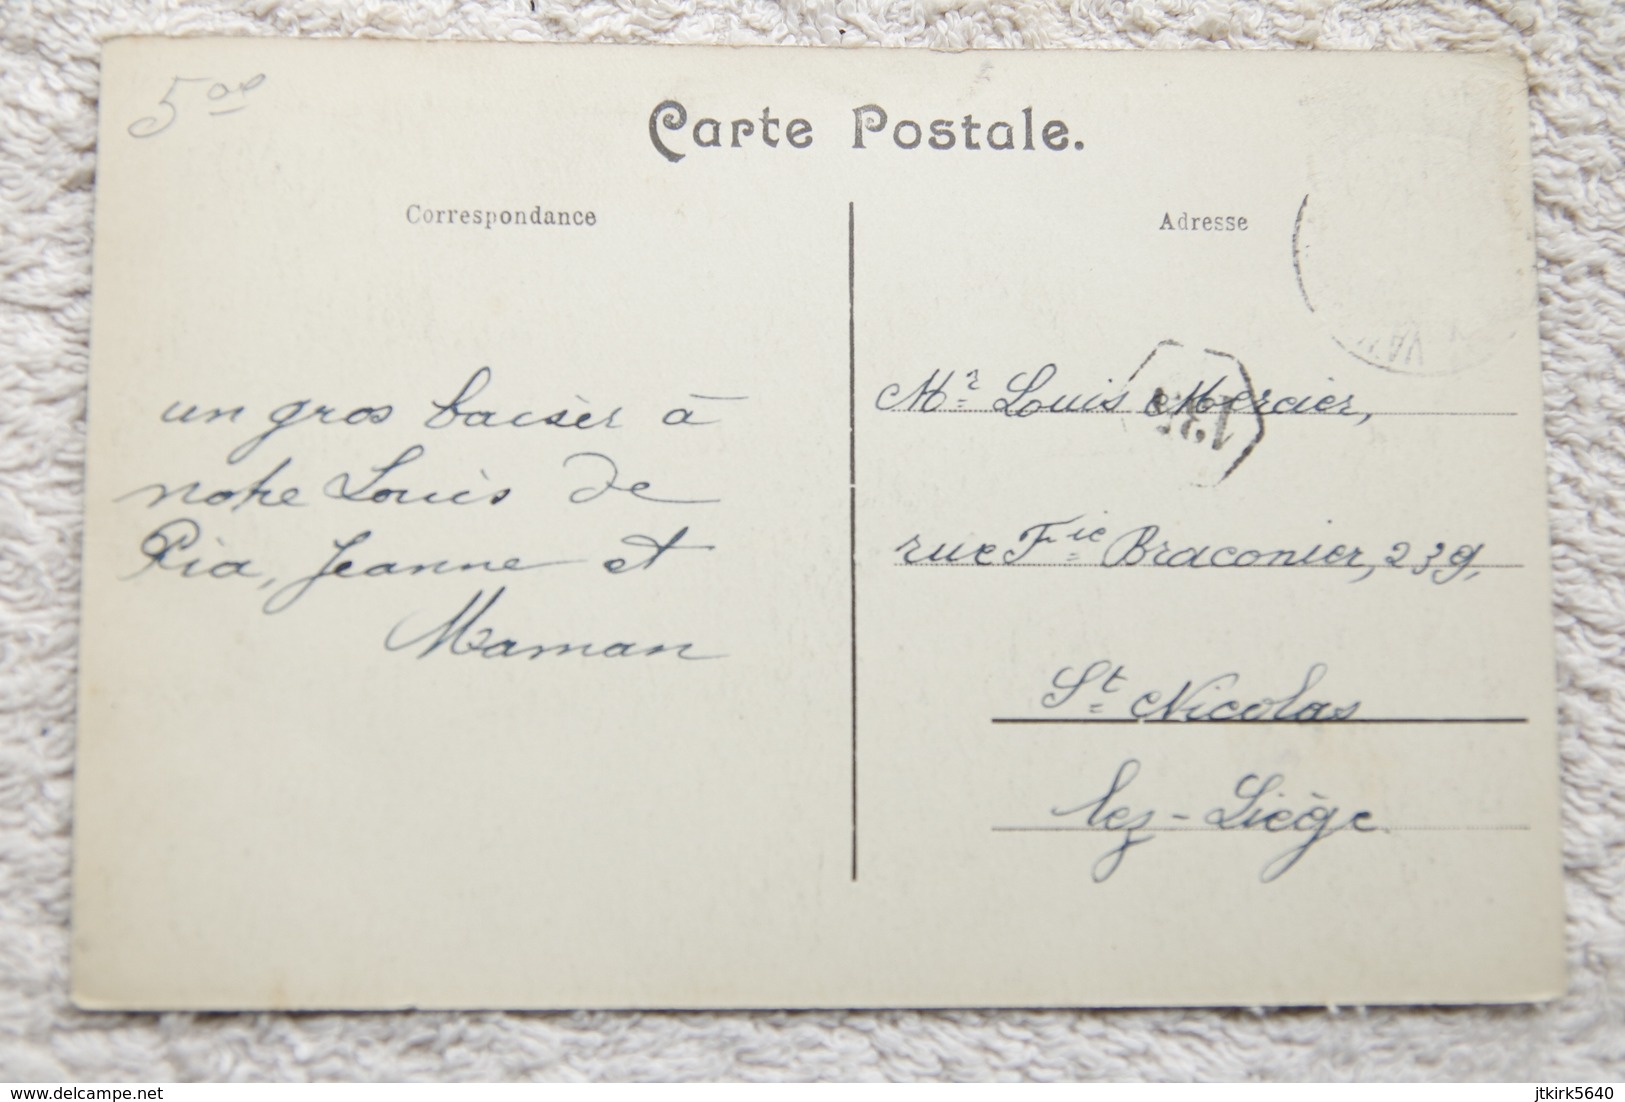 5 00
Carte Postale.
Correspondance
Adresse
un gros baiser à
notre Louis de
Pia, Jeanne et
Maman
Mr Louis Mercier,
rue Fie Braconier, 239,
St Nicolas
lez-Liège
www.delcampe.net
jtkirk5640